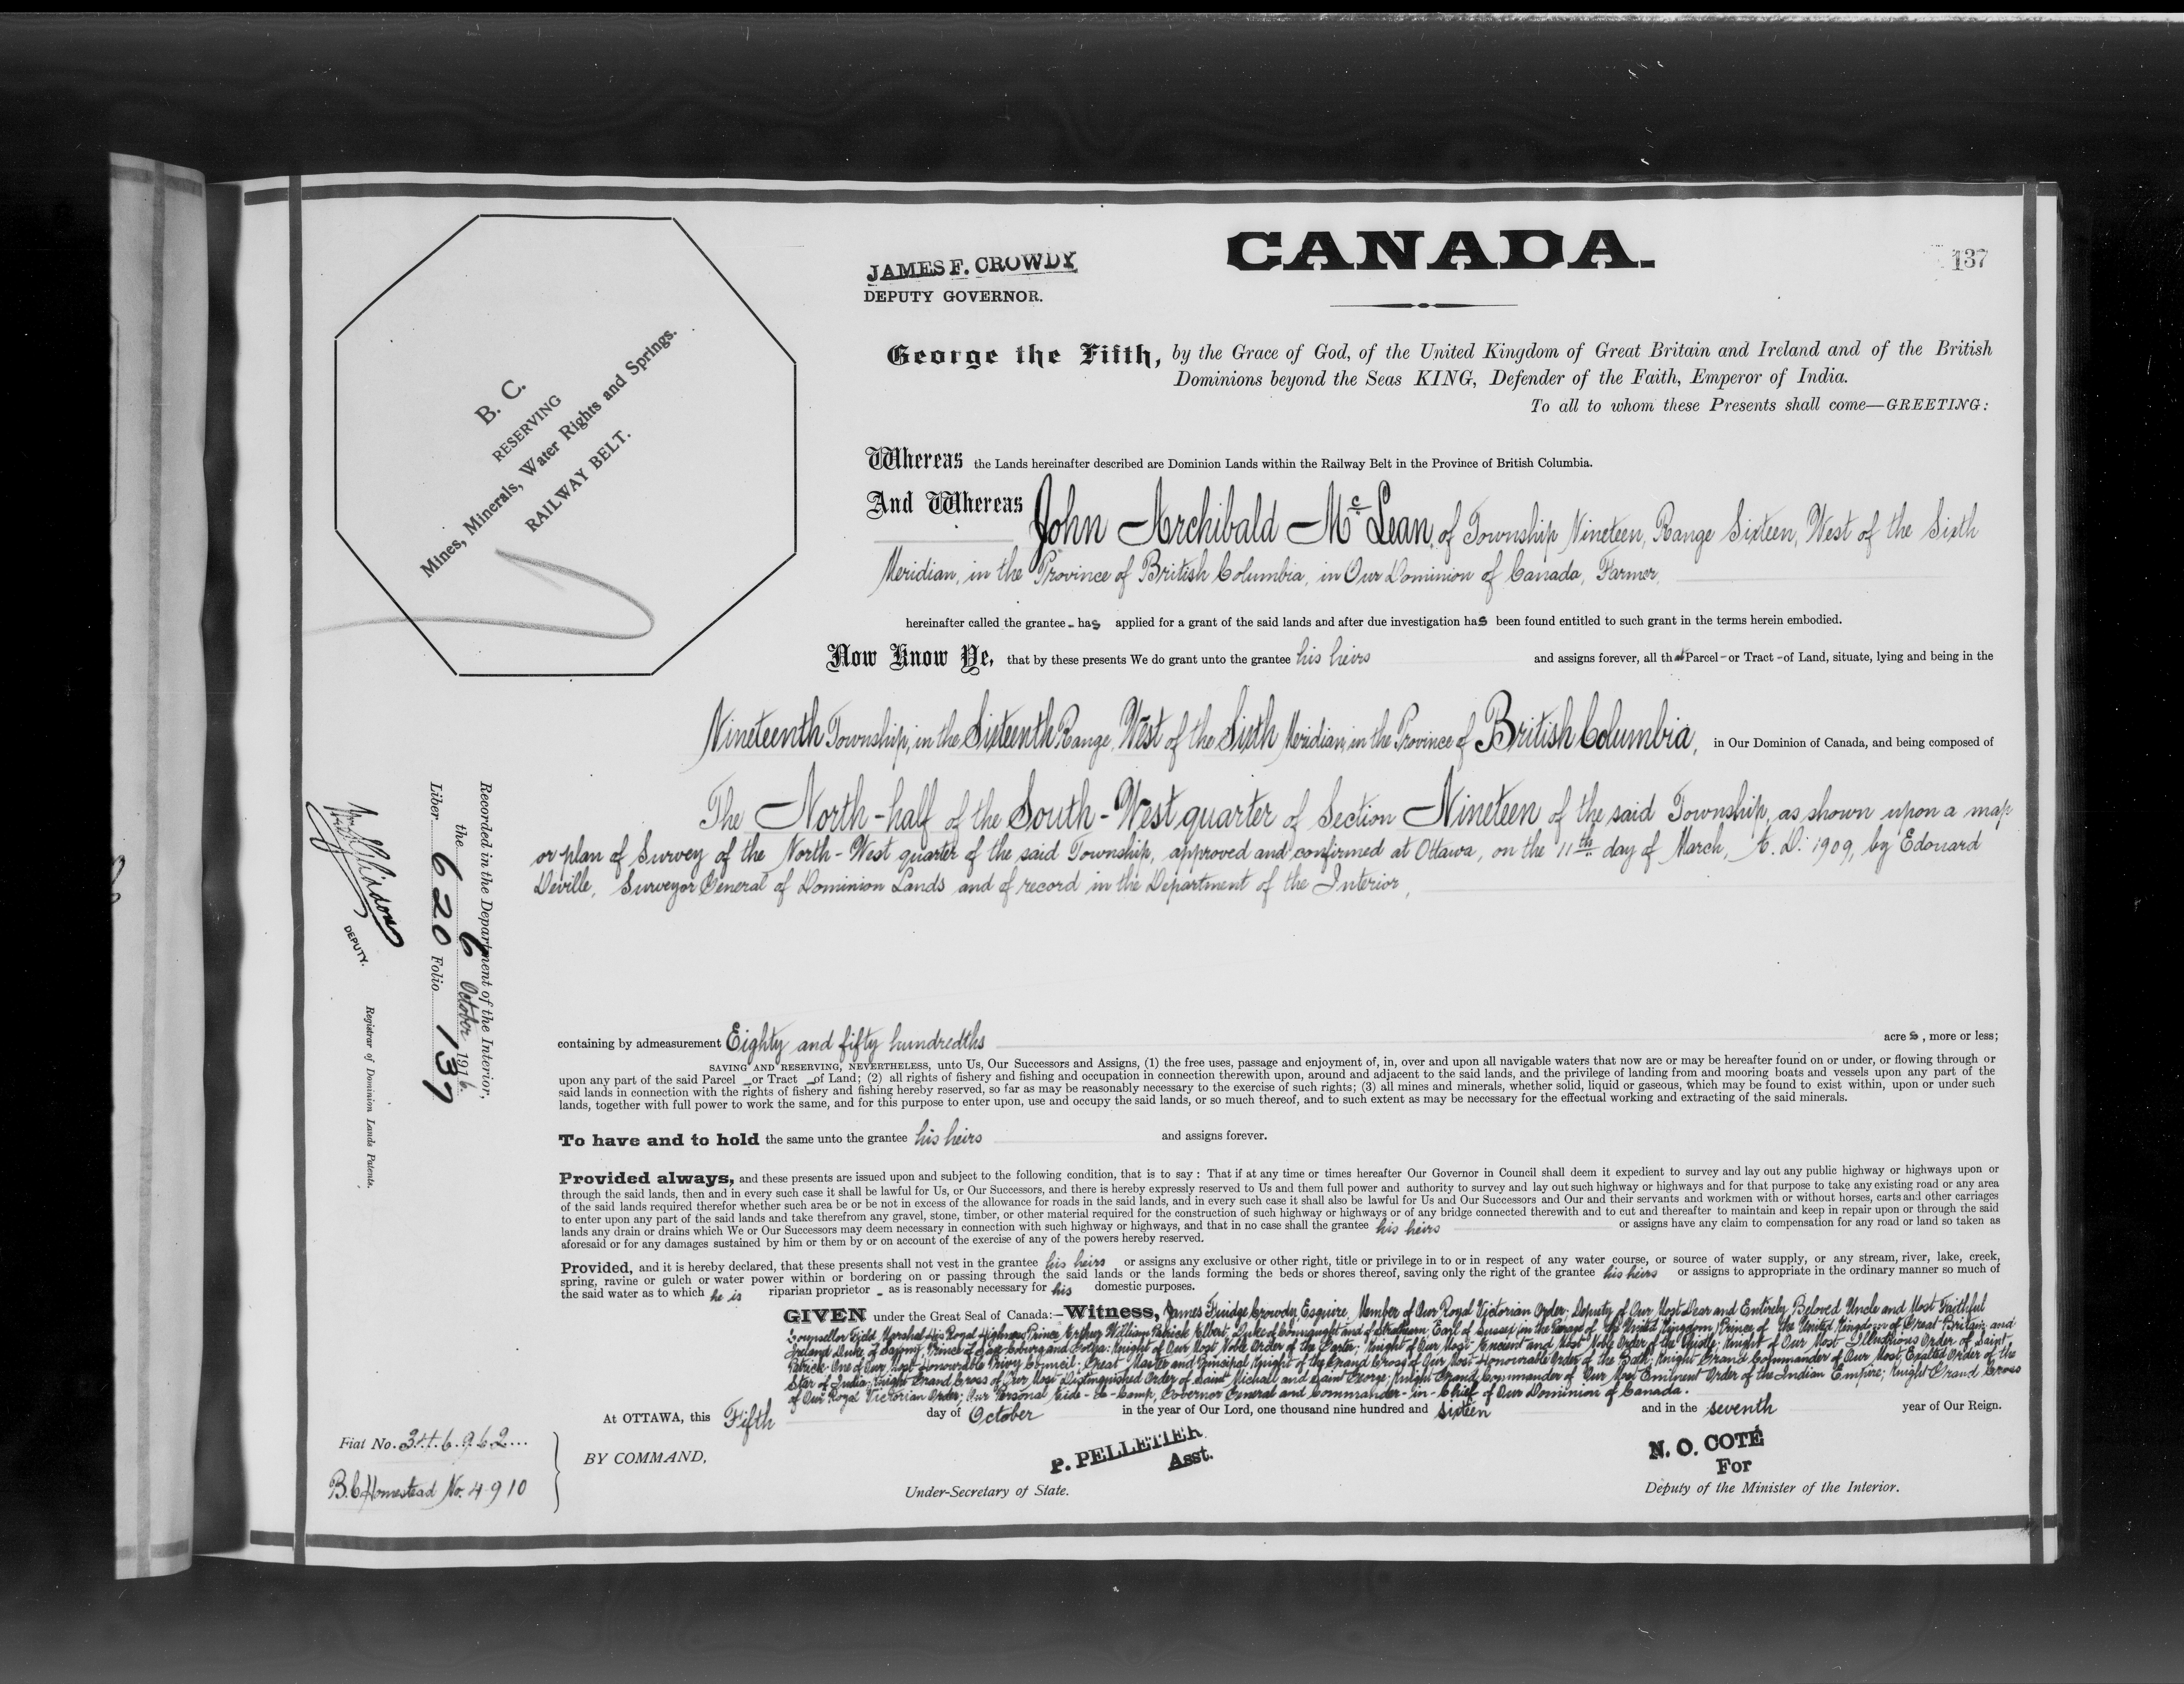 CANADA.
137
JAMES F. CROWDY
DEPUTY GOVERNOR.
B. C.
RESERVING
Mines, Minerals, Water Rights and Springs.
RAILWAY BELT.
George the Fifth, by the Grace of God, of the United Kingdom of Great Britain and Ireland and of the British
Dominions beyond the Seas KING, Defender of the Faith, Emperor of India.
To all to whom these Presents shall come—GREETING:
Whereas the Lands hereinafter described are Dominion Lands within the Railway Belt in the Province of British Columbia.
And Whereas John Archibald McLean, of Township Nineteen, Range Sixteen, West of the Sixth
Meridian, in the Province of British Columbia, in Our Dominion of Canada, Farmer,
hereinafter called the grantee - has applied for a grant of the said lands and after due investigation has been found entitled to such grant in the terms herein embodied.
Now Know Ye, that by these presents We do grant unto the grantee his heirs and assigns forever, all that Parcel - or Tract - of Land, situate, lying and being in the
Nineteenth Township, in the Sixteenth Range, West of the Sixth Meridian, in the Province of British Columbia, in Our Dominion of Canada, and being composed of
The North-half of the South-West quarter of Section Nineteen of the said Township, as shown upon a map
or plan of Survey of the North-West quarter of the said Township, approved and confirmed at Ottawa, on the 11th day of March, A. D. 1909, by Edouard
Deville, Surveyor General of Dominion Lands and of record in the Department of the Interior,
Recorded in the Department of the Interior,
the 6 October 1916.
Liber 620 Folio 137
DEPUTY.
Registrar of Dominion Lands Patents.
containing by admeasurement Eighty and fifty hundredths acres, more or less;
SAVING AND RESERVING, NEVERTHELESS, unto Us, Our Successors and Assigns, (1) the free uses, passage and enjoyment of, in, over and upon all navigable waters that now are or may be hereafter found on or under, or flowing through or
upon any part of the said Parcel - or Tract - of Land; (2) all rights of fishery and fishing and occupation in connection therewith upon, around and adjacent to the said lands, and the privilege of landing from and mooring boats and vessels upon any part of the
said lands in connection with the rights of fishery and fishing hereby reserved, so far as may be reasonably necessary to the exercise of such rights; (3) all mines and minerals, whether solid, liquid or gaseous, which may be found to exist within, upon or under such
lands, together with full power to work the same, and for this purpose to enter upon, use and occupy the said lands, or so much thereof, and to such extent as may be necessary for the effectual working and extracting of the said minerals.
To have and to hold the same unto the grantee his heirs and assigns forever.
Provided always, and these presents are issued upon and subject to the following condition, that is to say: That if at any time or times hereafter Our Governor in Council shall deem it expedient to survey and lay out any public highway or highways upon or
through the said lands, then and in every such case it shall be lawful for Us, or Our Successors, and there is hereby expressly reserved to Us and them full power and authority to survey and lay out such highway or highways and for that purpose to take any existing road or any area
of the said lands required therefor whether such area be or be not in excess of the allowance for roads in the said lands, and in every such case it shall also be lawful for Us and Our Successors and Our and their servants and workmen with or without horses, carts and other carriages
to enter upon any part of the said lands and take therefrom any gravel, stone, timber, or other material required for the construction of such highway or highways or of any bridge connected therewith and to cut and thereafter to maintain and keep in repair upon or through the said
lands any drain or drains which We or Our Successors may deem necessary in connection with such highway or highways, and that in no case shall the grantee his heirs or assigns have any claim to compensation for any road or land so taken as
aforesaid or for any damages sustained by him or them by or on account of the exercise of any of the powers hereby reserved.
Provided, and it is hereby declared, that these presents shall not vest in the grantee his heirs or assigns any exclusive or other right, title or privilege in to or in respect of any water course, or source of water supply, or any stream, river, lake, creek,
spring, ravine or gulch or water power within or bordering on or passing through the said lands or the lands forming the beds or shores thereof, saving only the right of the grantee his heirs or assigns to appropriate in the ordinary manner so much of
the said water as to which he is riparian proprietor - as is reasonably necessary for his domestic purposes.
GIVEN under the Great Seal of Canada:—Witness, James Fuidge Crowdy Esquire, Member of Our Royal Victorian Order, Deputy of Our Most Dear and Entirely Beloved Uncle and Most Faithful
Counsellor Field Marshal His Royal Highness Prince Arthur William Patrick Albert, Duke of Connaught and of Strathearn, Earl of Sussex (in the Peerage of the United Kingdom) Prince of the United Kingdom of Great Britain and
Ireland, Duke of Saxony, Prince of Saxe-Cobourg and Gotha; Knight of Our Most Noble Order of the Garter; Knight of Our Most Ancient and Most Noble Order of the Thistle; Knight of Our Most Illustrious Order of Saint
Patrick; One of Our Most Honourable Privy Council; Great Master and Principal Knight of the Grand Cross of Our Most Honourable Order of the Bath; Knight Grand Commander of Our Most Exalted Order of the
Star of India; Knight Grand Cross of Our Most Distinguished Order of Saint Michall and Saint George; Knight Grand Commander of Our Most Eminent Order of the Indian Empire; Knight Grand Cross
of Our Royal Victorian Order; Our Personal Aide-de-Camp, Governor General and Commander-in-Chief of Our Dominion of Canada.
At OTTAWA, this Fifth day of October in the year of Our Lord, one thousand nine hundred and sixteen and in the seventh year of Our Reign.
Fiat No. 346962
B.C Homestead No. 4910
BY COMMAND,
P. PELLETIER
Asst.
Under-Secretary of State.
N. O. COTÉ
For
Deputy of the Minister of the Interior.